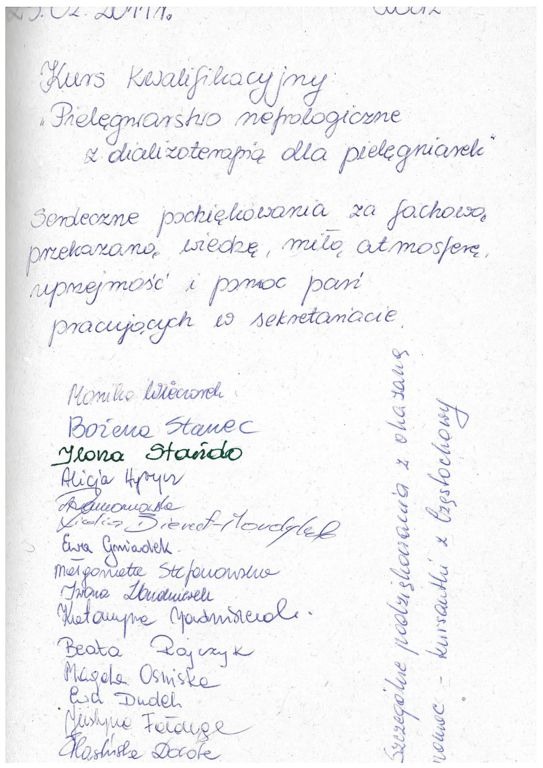 Kurs Kwalifikacyjny
"Pielęgniarstwo nefrologiczne
z dializoterapią dla pielęgniarek"
Serdeczne podziękowania za fachową,
przekazaną wiedzę, miłą atmosferę,
uprzejmość i pomoc pań
pracujących w sekretariacie.
Monika
Bożena Stanec
Ilona Stańdo
Alicja
Ewa Gwiadek
Małgorzata Stefanowska
Iwona
Katarzyna
Beata Rajczyk
Magda Osińska
Ewa Dudek
Justyna
Dorota
Szczególne podziękowania z okazaną
pomoc - kursantki z Częstochowy